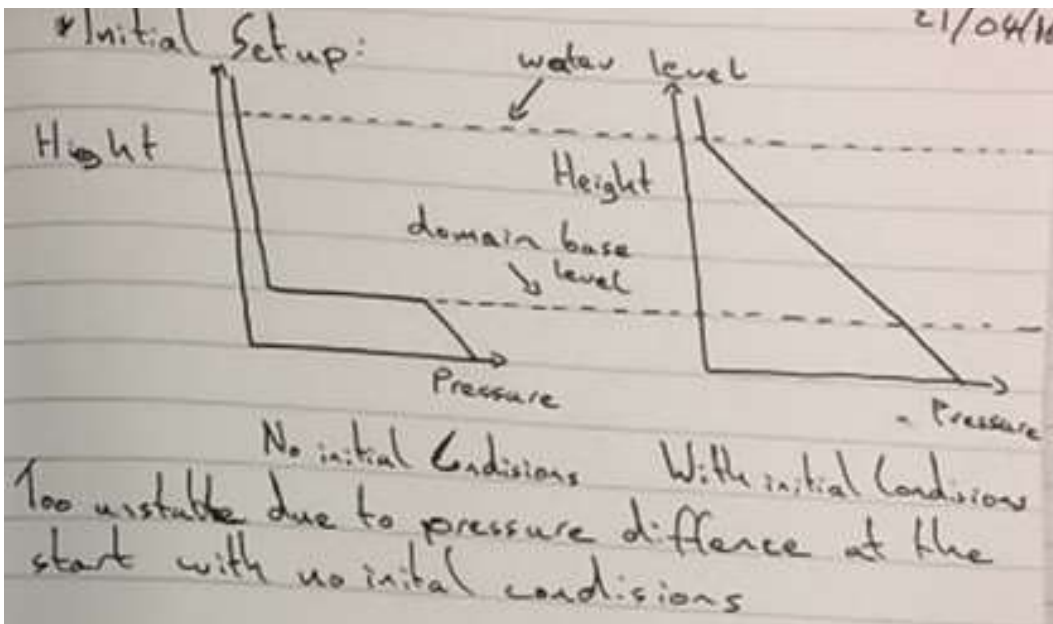 21/04/16
*Initial Setup:
water level
Hight
Height
domain base
level
Pressure
Pressure
No initial Condisions
With initial Condisions
Too unstable due to pressure diffence at the
start with no inital condisions